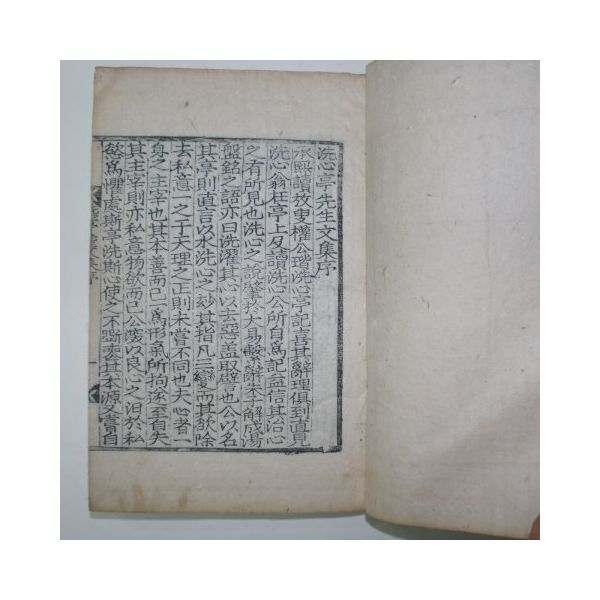 洗心亭先生文集序
承熙讀放叟權公瑎洗心亭記喜其辭理俱到直見
洗心翁在亭上及讀洗心公所自爲記益信其治心
之有所見也洗心之說譬於大易繫辭本于解成湯
盤銘之語亦曰洗濯其心以去惡盖取譬也公以名
其亭則直言以水洗心之妙其指凡三變而其欲除
去私意一之于天理之正則未嘗不同也夫心者一
身之主宰也其本善而已爲形氣所拘途至自失
其主宰則亦私意物欲而已公深以良心之汨於私
慾爲懼處斯亭洗斯心使之不斲喪其本源又嘗自